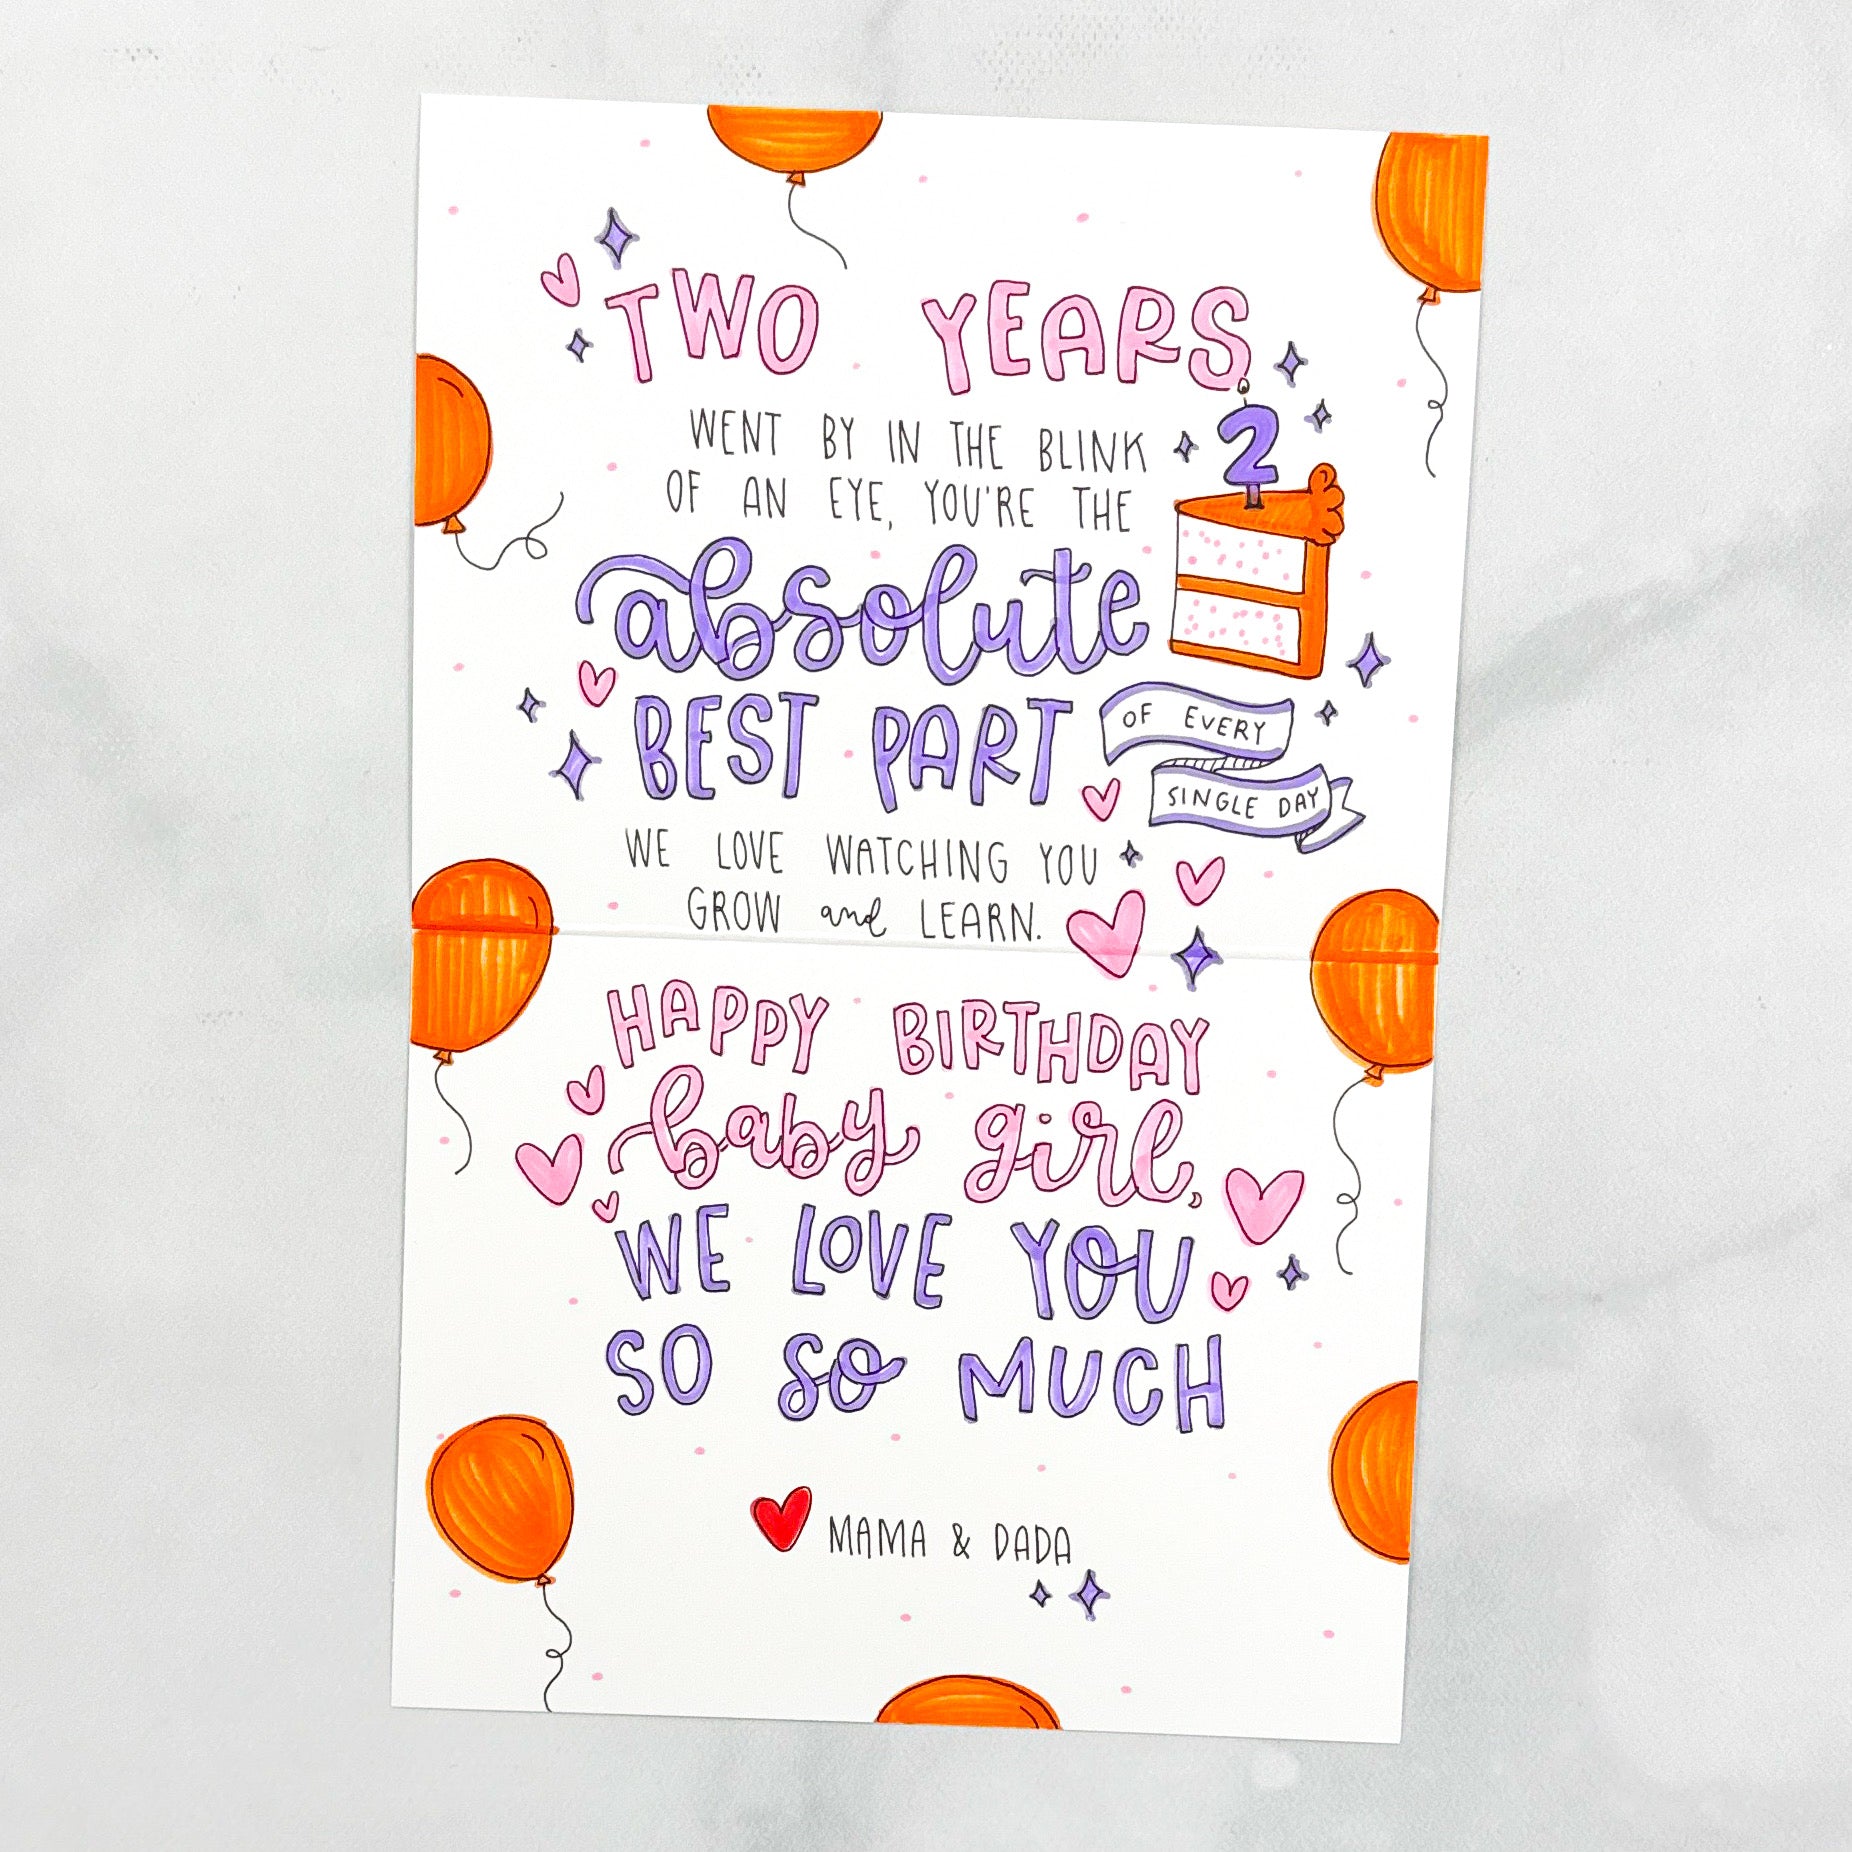 TWO YEARS
WENT BY IN THE BLINK
OF AN EYE, YOU'RE THE
2
absolute
BEST PART
OF EVERY
SINGLE DAY
WE LOVE WATCHING YOU
GROW and LEARN.
HAPPY BIRTHDAY
baby girl,
WE LOVE YOU
SO SO MUCH
MAMA & DADA